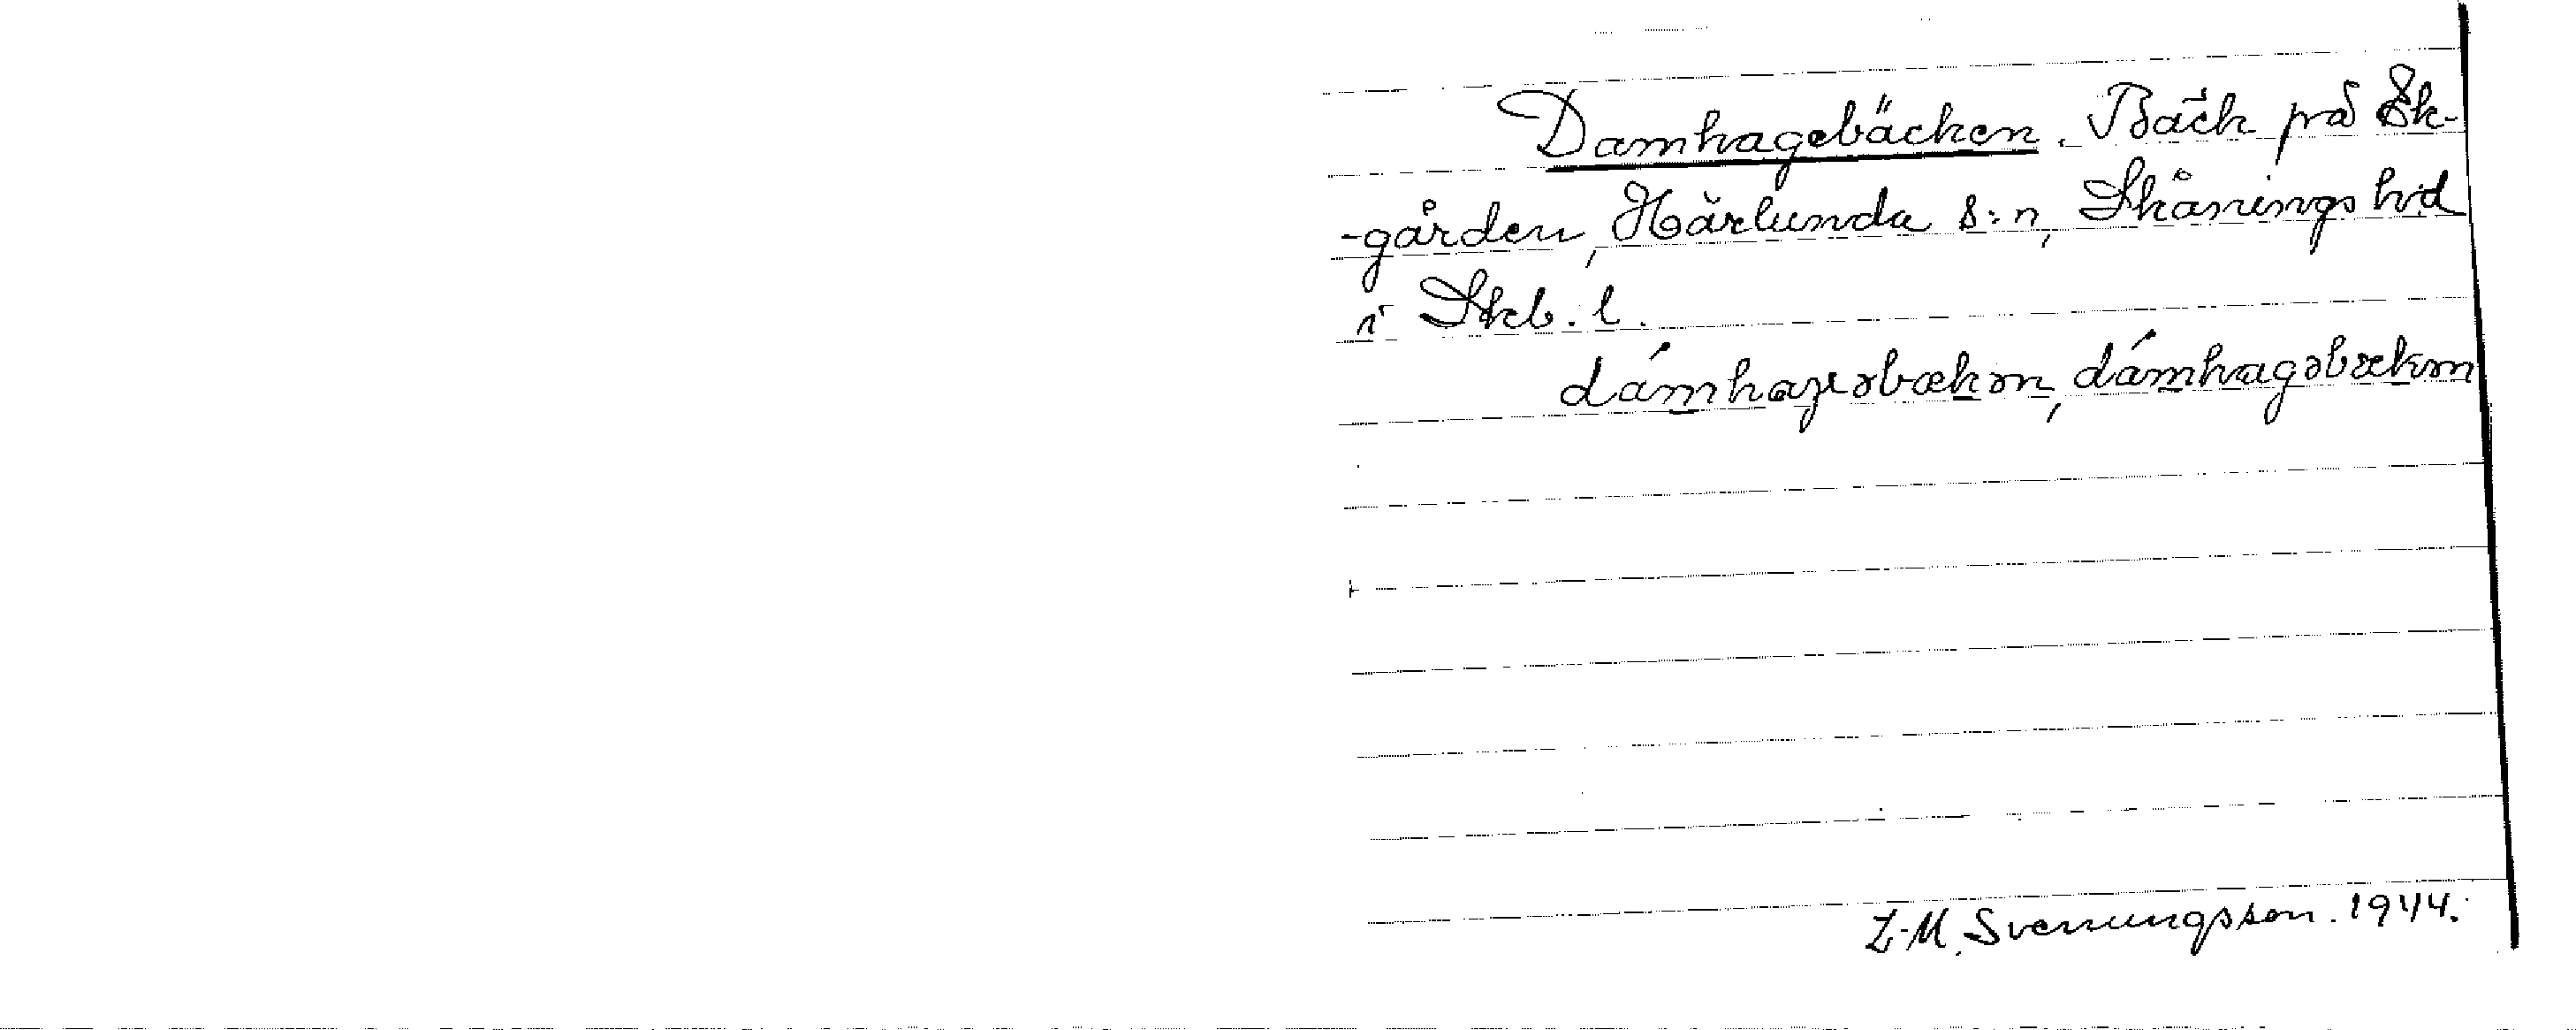 Damhagebäcken. Bäck på Ek-
-gården, Härlunda s:n, Skånings hd
i Skb. l.
dámhaɡəbækən, dámhagəbækən
Z-M. Svenungsson. 1944.